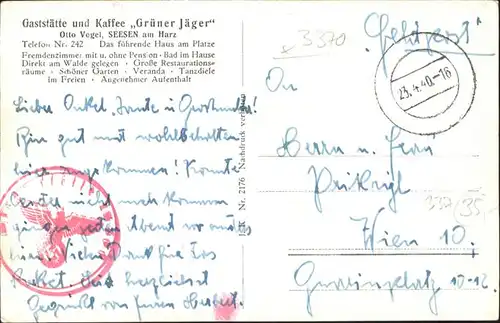 Gaststätte und Kaffee „Grüner Jäger"
Otto Vogel, SEESEN am Harz
Telefon Nr. 242 Das führende Haus am Platze
Fremdenzimmer mit u. ohne Pension · Bad im Hause
Direkt am Walde gelegen · Große Restaurations-
räume · Schöner Garten · Veranda · Tanzdiele
im Freien · Angenehmer Aufenthalt
Lieber Onkel, Tante u
Bin gut und wohlbehalten
hier angekommen! Konnte
nicht mehr kommen
jeden Abend
Vielen Dank für das
Paket. Seid herzlichst
Gegrüßt von Eurem Herbert.
L&K Nr. 2176 Nachdruck verboten
x 3370
Feldpost
23.4.40.-18
An
Herrn u. Frau
Wien 10.
10-12.